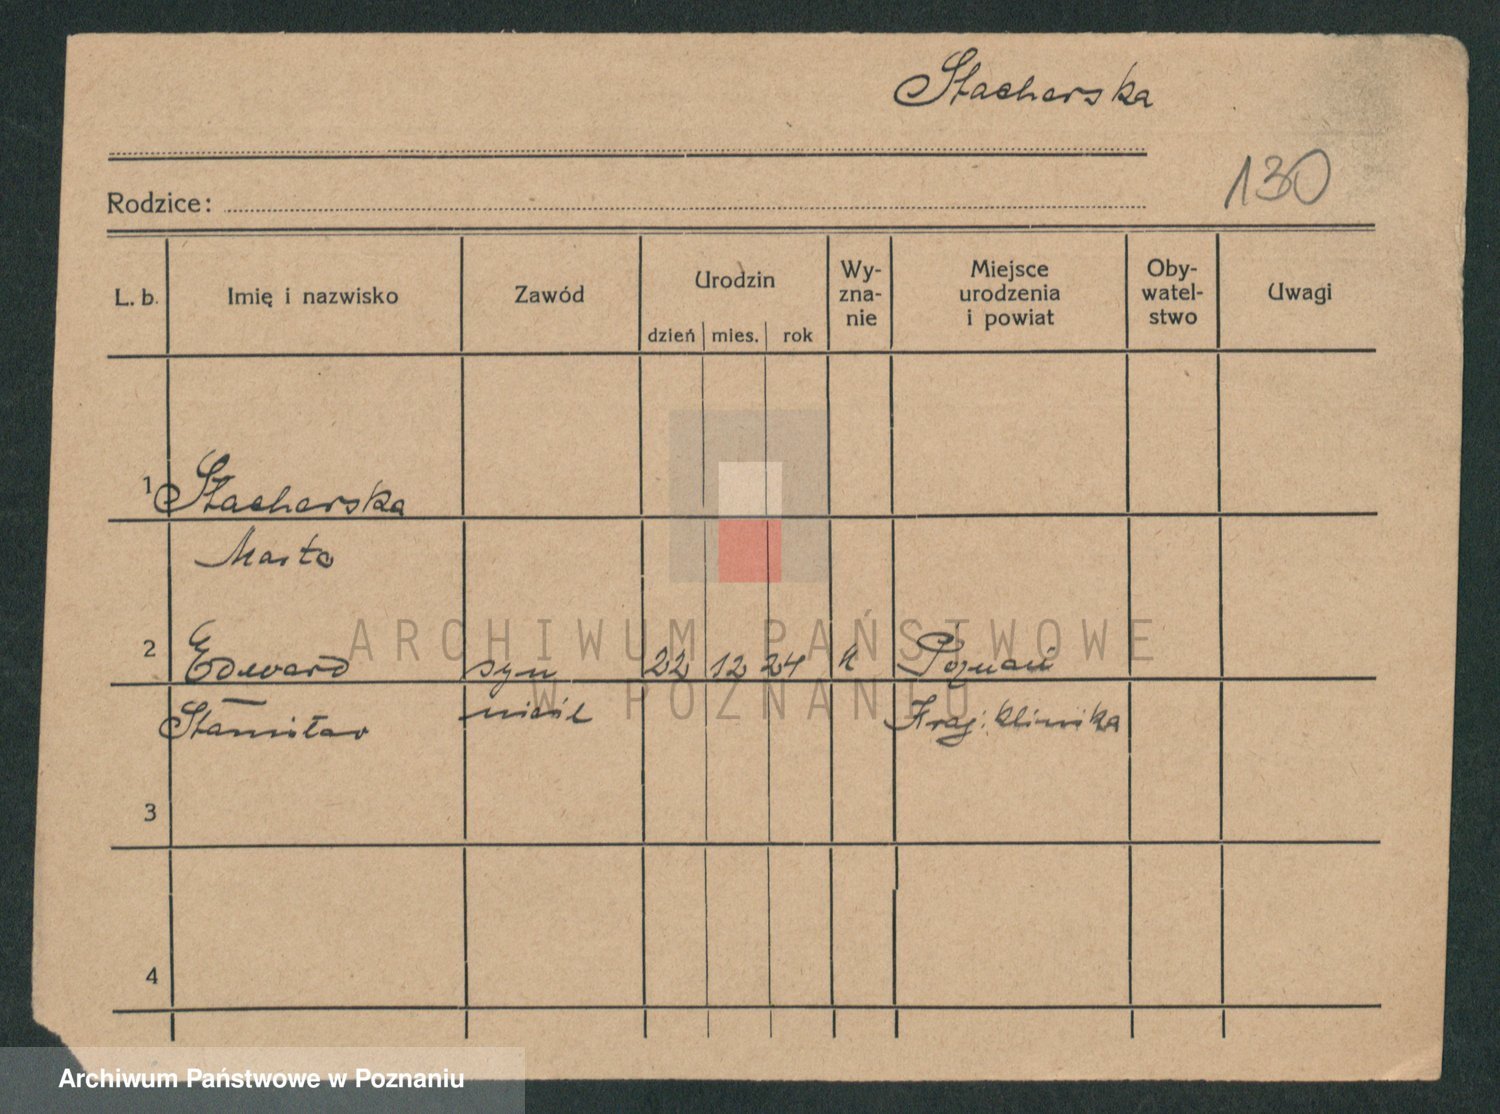 Stacherska
130
Rodzice:
L. b. Imię i nazwisko Zawód Urodzin dzień mies. rok Wy-zna-nie Miejsce urodzenia i powiat Oby-watel-stwo Uwagi
1 Stacherska
Marta
2 Edward syn 22 12 24 k Poznań
Stanisław nieśl Kraj. klinika
3
4
ARCHIWUM PAŃSTWOWE
W POZNANIU
Archiwum Państwowe w Poznaniu